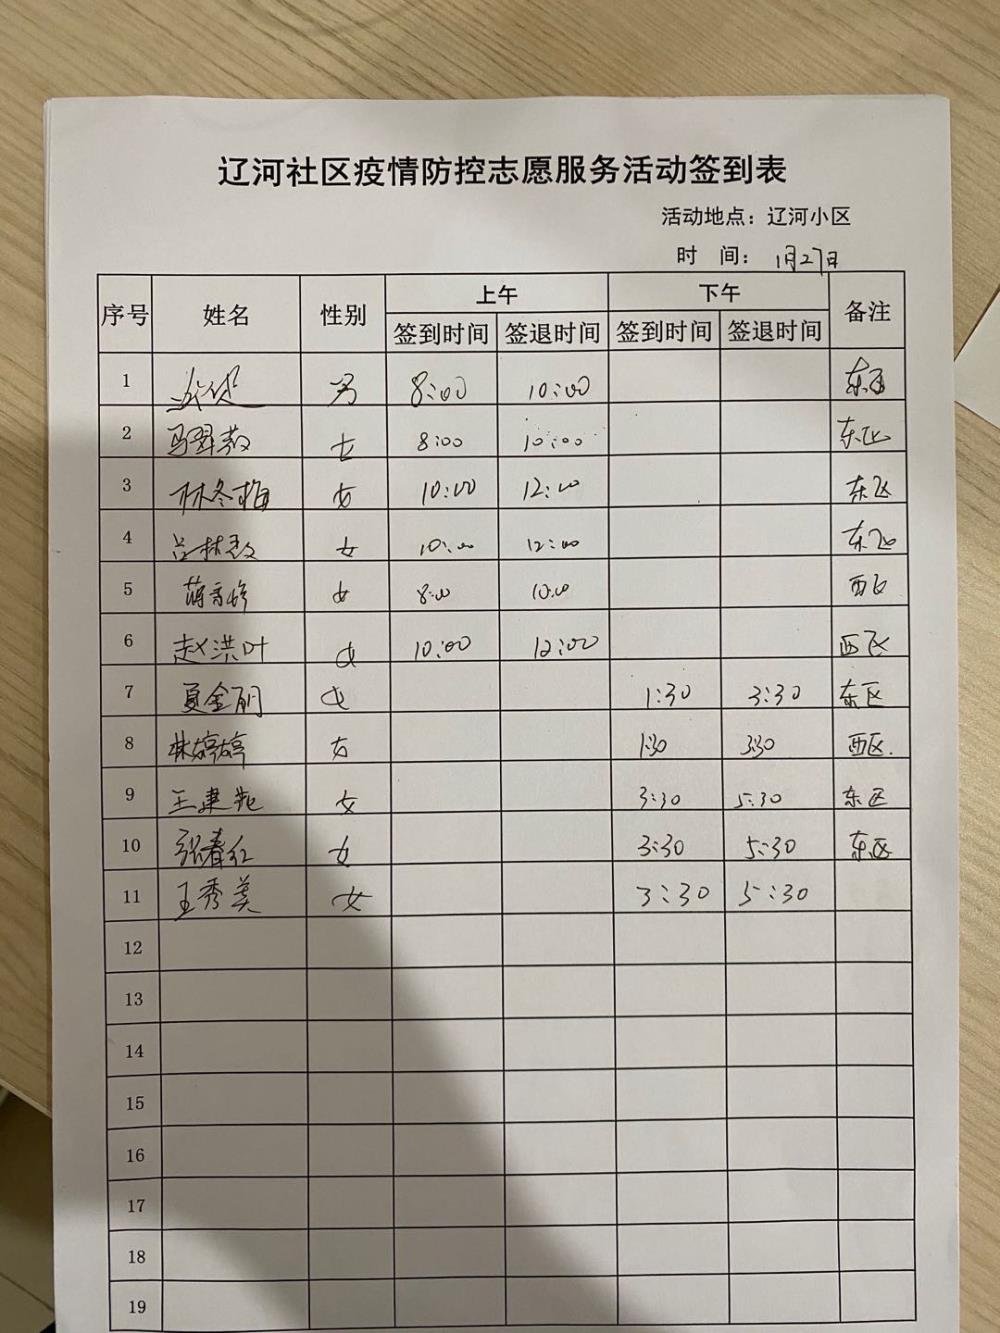 辽河社区疫情防控志愿服务活动签到表
活动地点：辽河小区
时 间： 1月27日
序号 姓名 性别 上午 下午 备注
签到时间 签退时间 签到时间 签退时间
1 男 8:00 10:00 东区
2 马 女 8:00 10:00 东区
3 林冬梅 女 10:00 12:00 东区
4 吕林 女 10:00 12:00 东区
5 蒋 女 8:00 10:00 西区
6 赵洪叶 女 10:00 12:00 西区
7 夏金丽 女 1:30 3:30 东区
8 林婷婷 女 1:30 3:30 西区.
9 王建 女 3:30 5:30 东区
10 张春红 女 3:30 5:30 东区
11 王秀美 女 3:30 5:30
12
13
14
15
16
17
18
19